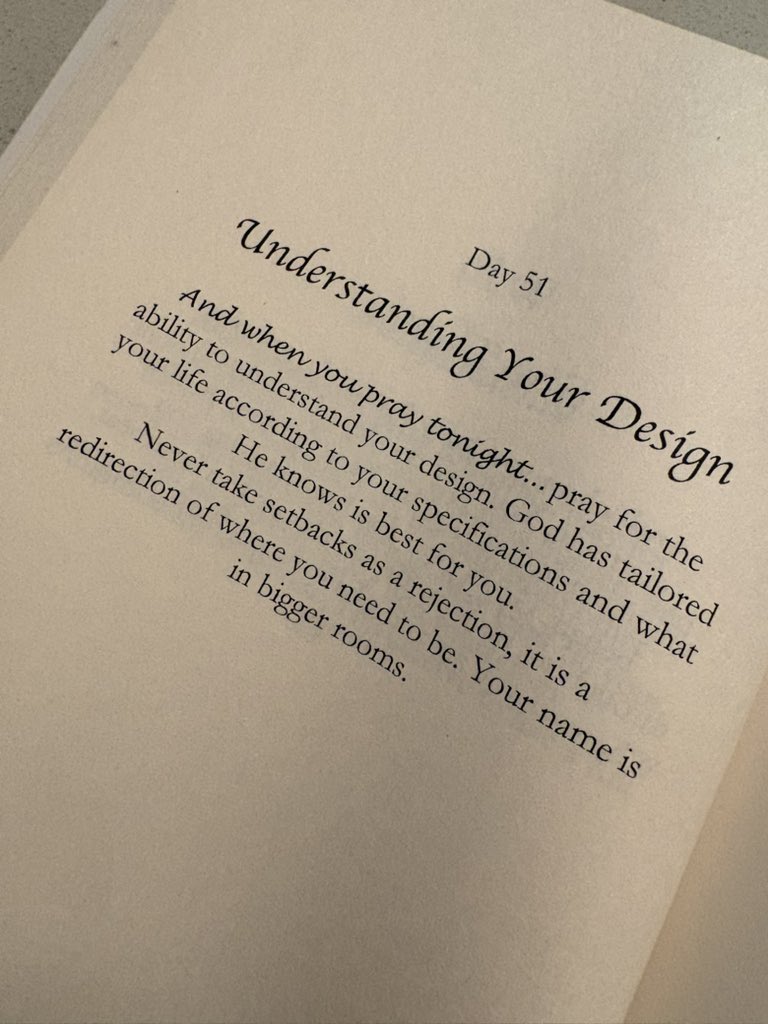 Day 51
Understanding Your Design
And when you pray tonight... pray for the
ability to understand your design. God has tailored
your life according to your specifications and what
He knows is best for you.
Never take setbacks as a rejection, it is a
redirection of where you need to be. Your name is
in bigger rooms.